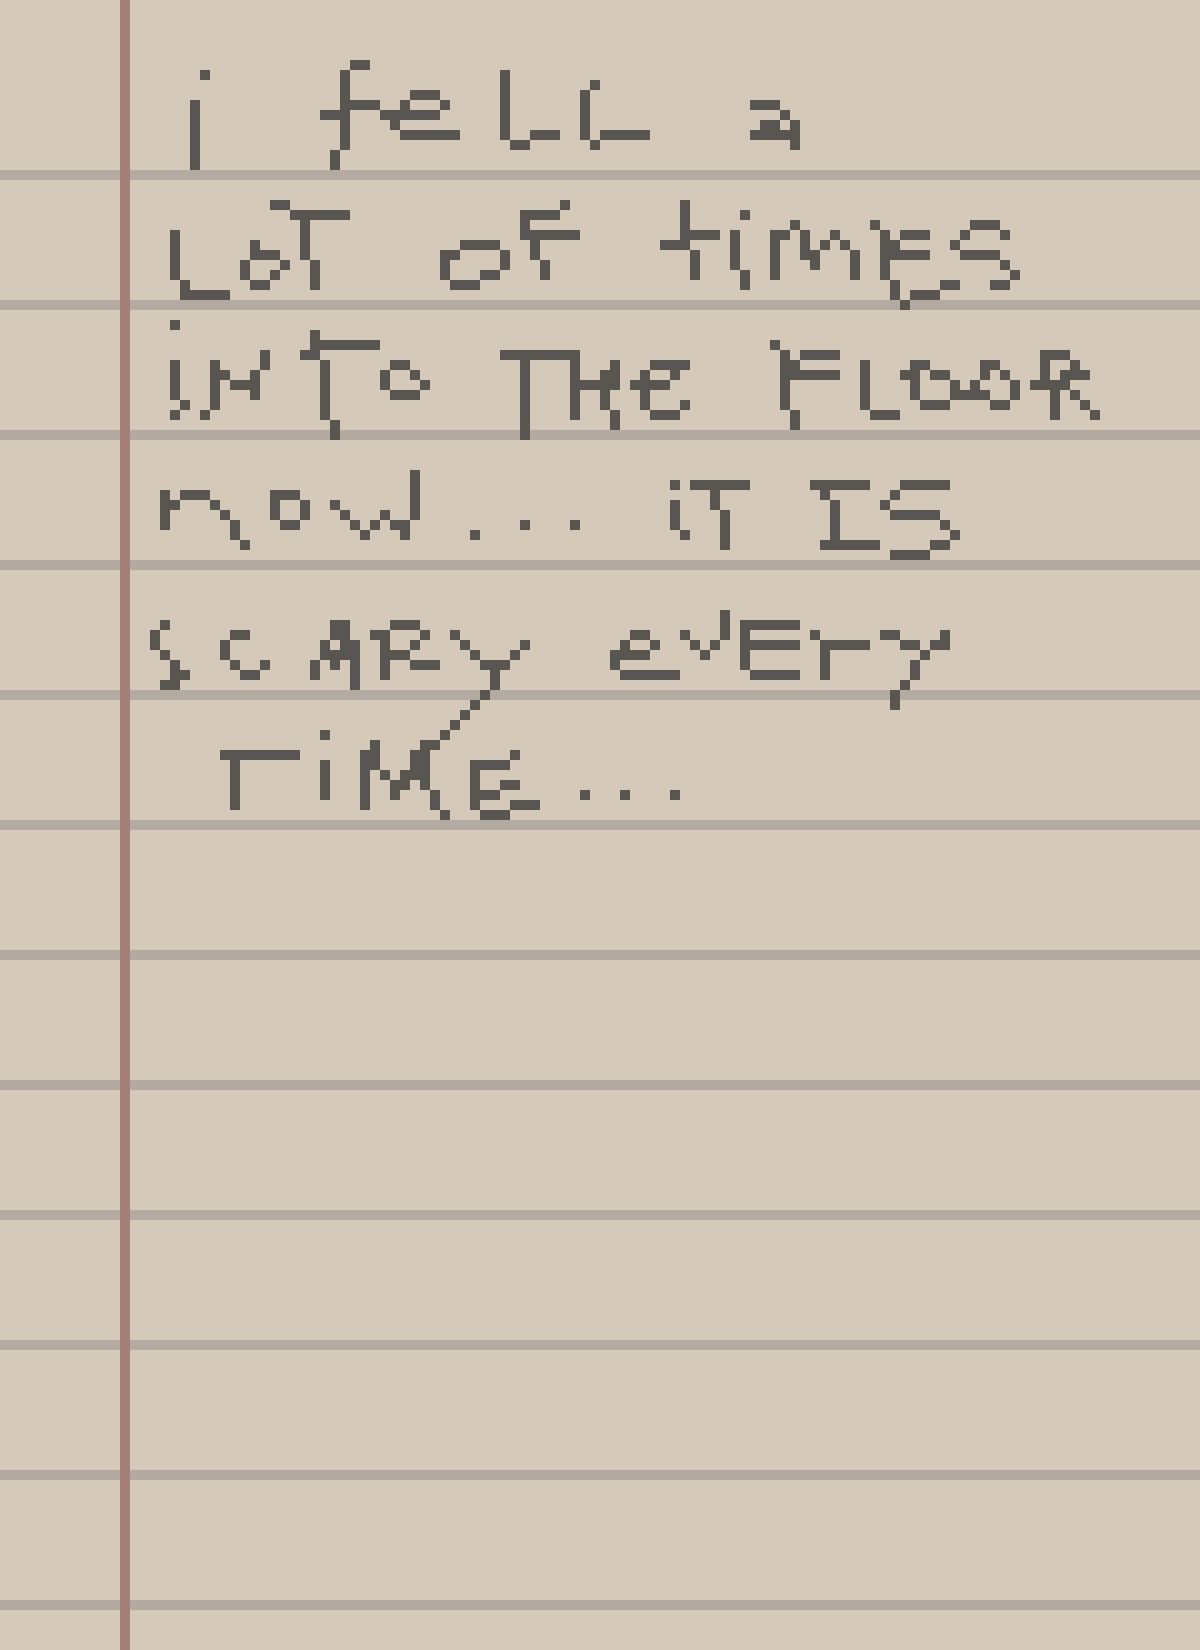 i fell a
LoT oF timES
iNTo THe FLooR
now... iT IS
scARy evEry
TiME...